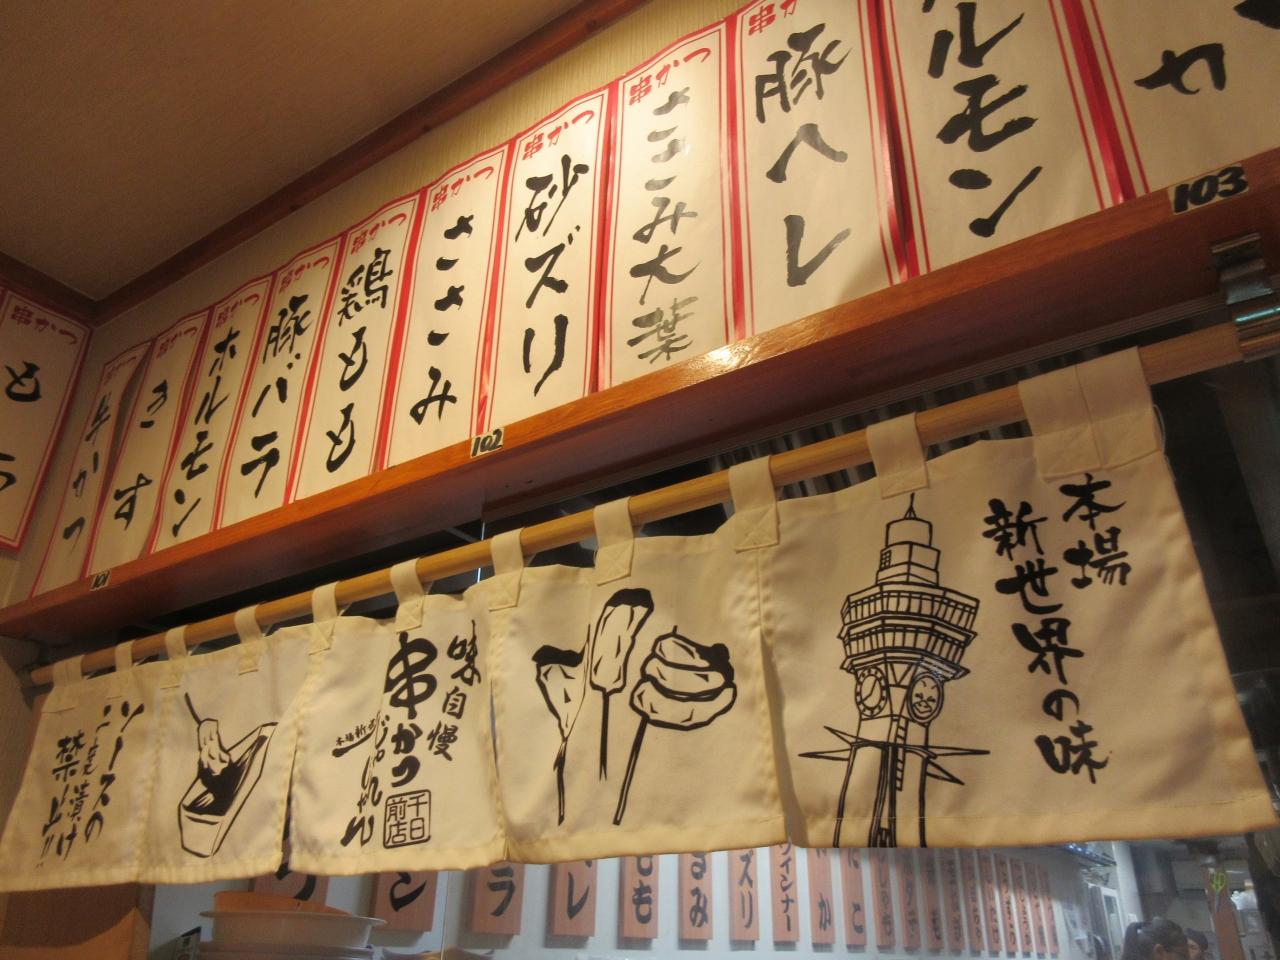 串かつ
串かつ 牛かつ
串かつ きす
串かつ ホルモン
串かつ 豚バラ
串かつ 鶏もも
串かつ ささみ
串かつ 砂ズリ
串かつ ささみ大葉
串かつ 豚ヘレ
ルモン
101
102
103
ソースの
二度漬け
禁止!!
味自慢
串かつ
本場新世界
じゃんじゃん
千日
前店
本場
新世界の味
ラ
レ
もも
さみ
ズリ
ウインナー